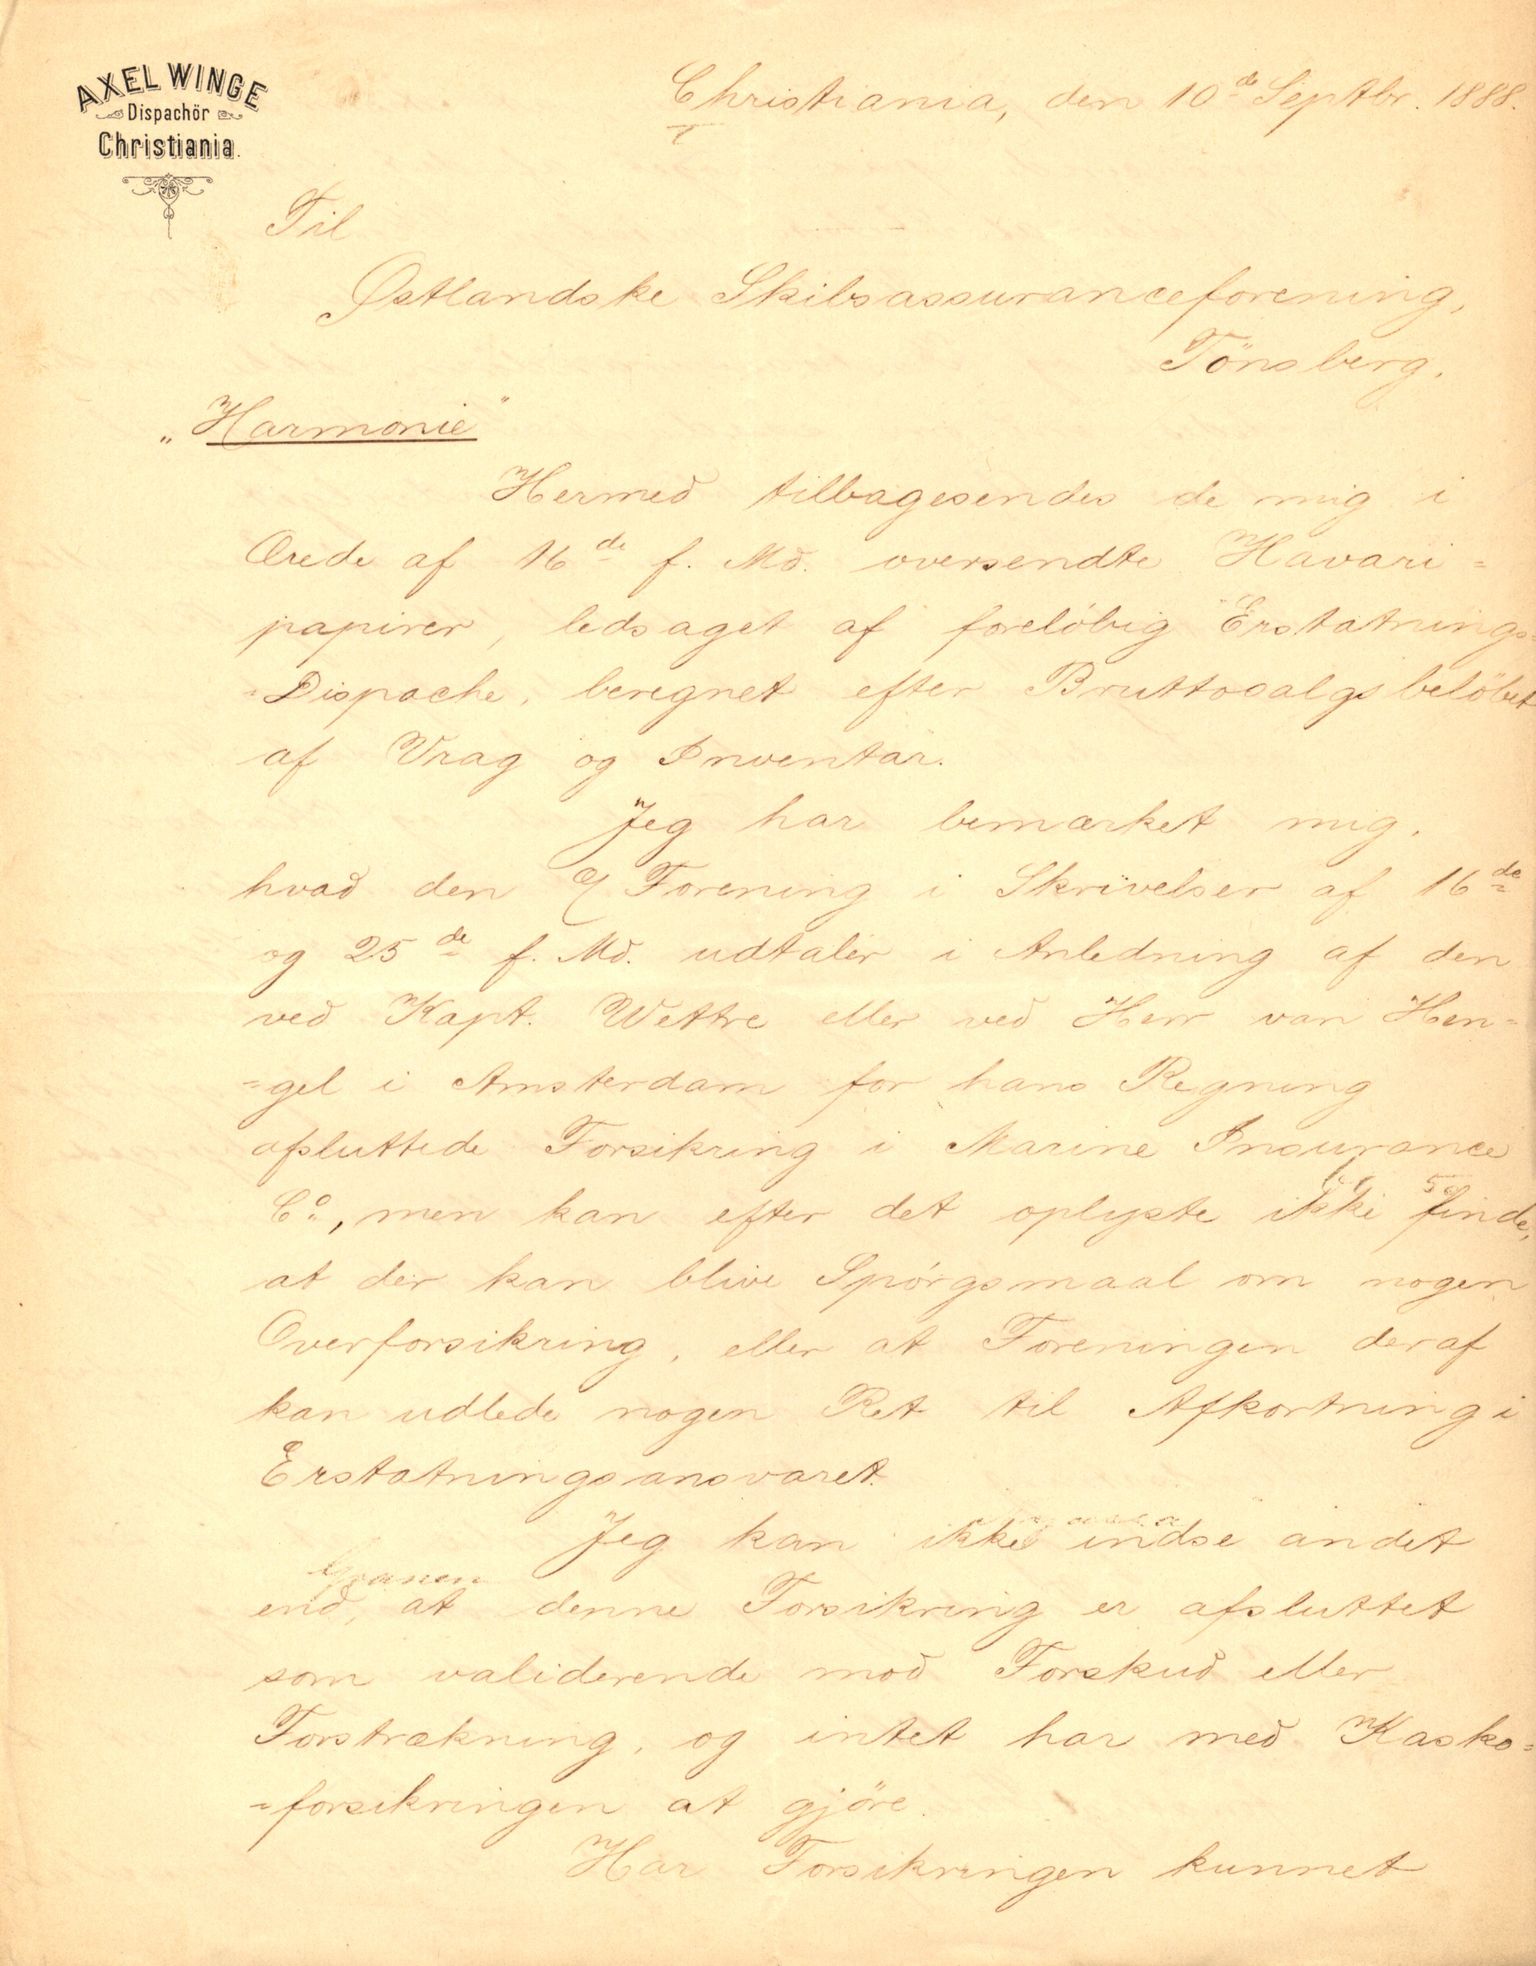 AXEL WINGE
Dispachör
Christiania.
Christiania, den 10de Septbr. 1888.
Til
Østlandske Skibsassuranceforening,
Tönsberg.
„Harmonie"
Hermed tilbagesendes de mig i
Ærede af 16de f. Md. oversendte Havari=
papirer, ledsaget af foreløbig Erstatnings=
=Dispache, beregnet efter Bruttosalgsbeløbet
af Vrag og Inventar.
Jeg har bemærket mig,
hvad den Forening i Skrivelser af 16de
og 25de f. Md. udtaler i Anledning af den
ved Kapt. Wettre eller ved Herr van Hen=
=gel i Amsterdam for hans Regning
afsluttede Forsikring i Marine Insurance
Co., men kan efter det oplyste ikke finde,
at der kan blive Spørgsmaal om nogen
Overforsikring, eller at Foreningen deraf
kan udlede nogen Ret til Afkortning i
Erstatningsansvaret.
Jeg kan ikke indse andet
end, at denne Forsikring er afsluttet
som validerende mod Forskud eller
Forstrækning, og intet har med Kasko=
=forsikringen at gjöre.
Har Forsikringen kunnet